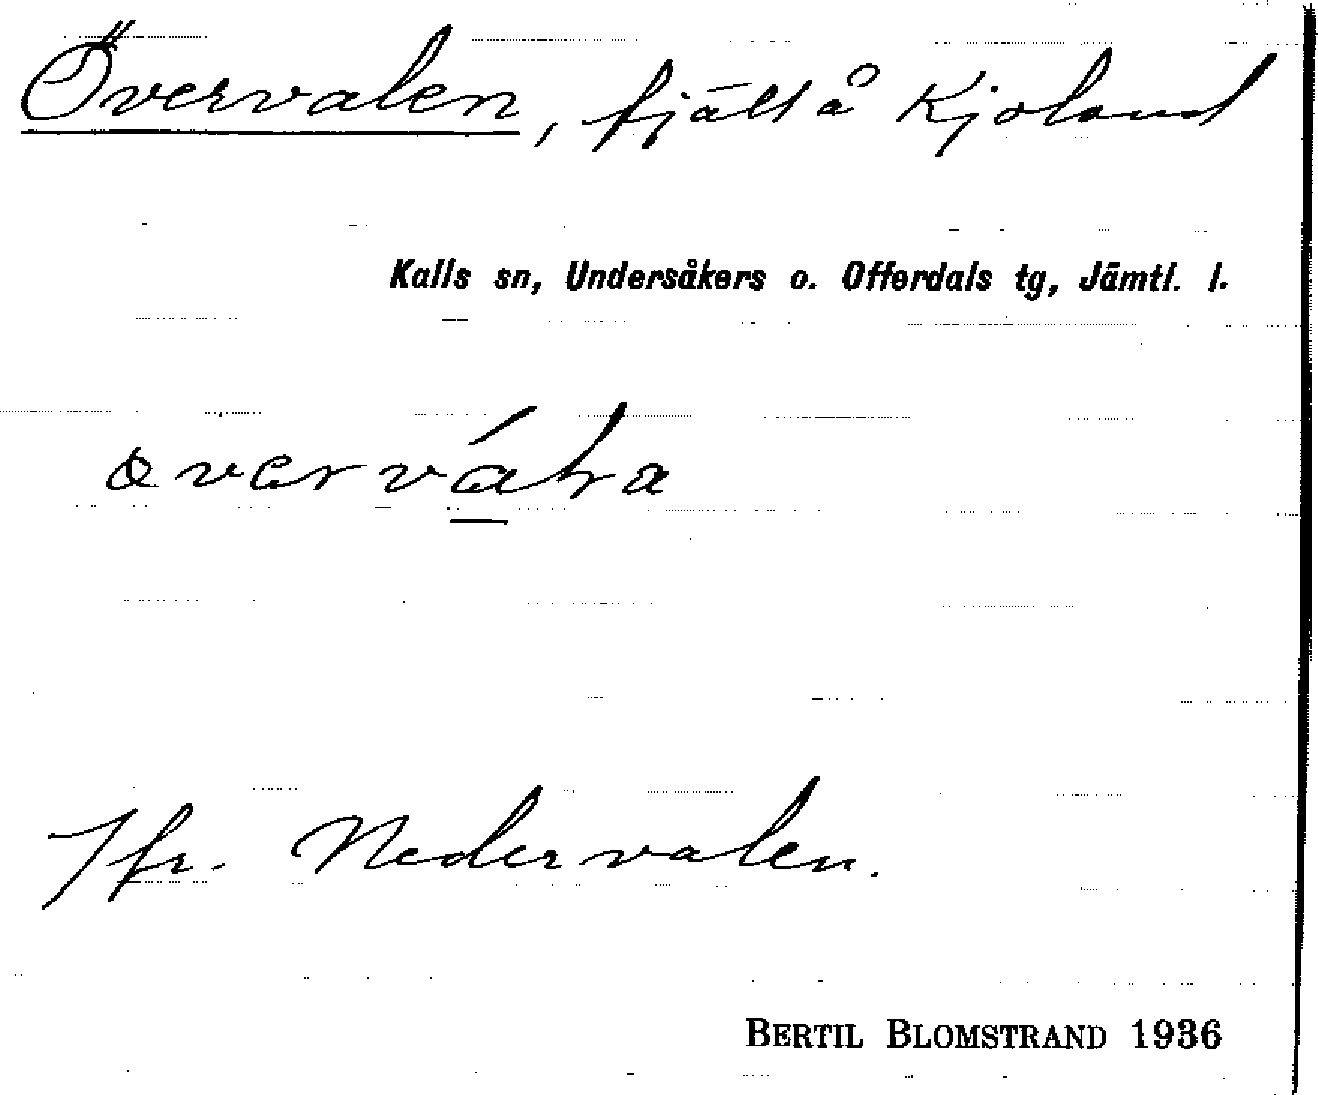 Övervalen, fjäll å Kjoland
Kalls sn, Undersåkers o. Offerdals tg, Jämtl. l.
Jfr. Nedervalen.
BERTIL BLOMSTRAND 1936